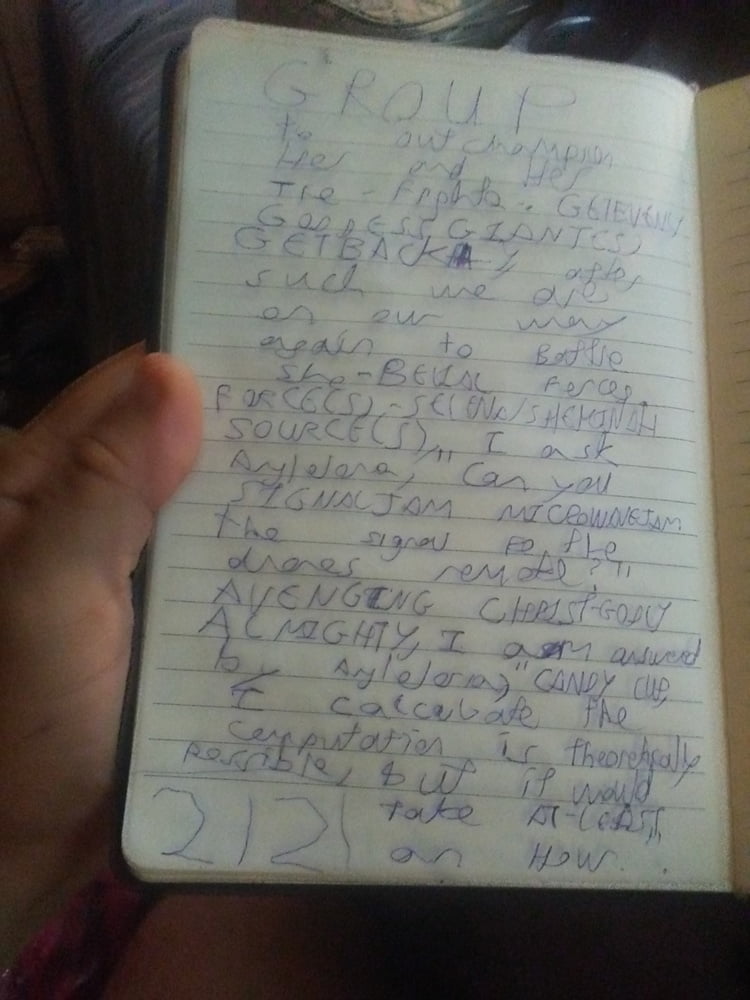 GROUP
to out champion
her and Her
Tie-Fights. GETEVENS,
GODDESS GIANT(S)
GETBACK, after
such we are
on our way
again to Battle
She-BELIAL Forces,
FORCE(S)-SELENA/SHEKINAH
SOURCE(S), " I ask
Ayleloria, "Can you
SIGNALJAM MICROWAVEJAM
the signal to the
drones remote?"
AVENGING CHRIST-GODLY
ALMIGHTY, I am answered
by Ayleloria, "CANDY CUP,
I calculate the
computation is theoretically
possible, but it would
take AT-LEAST,
2121 an Hour.